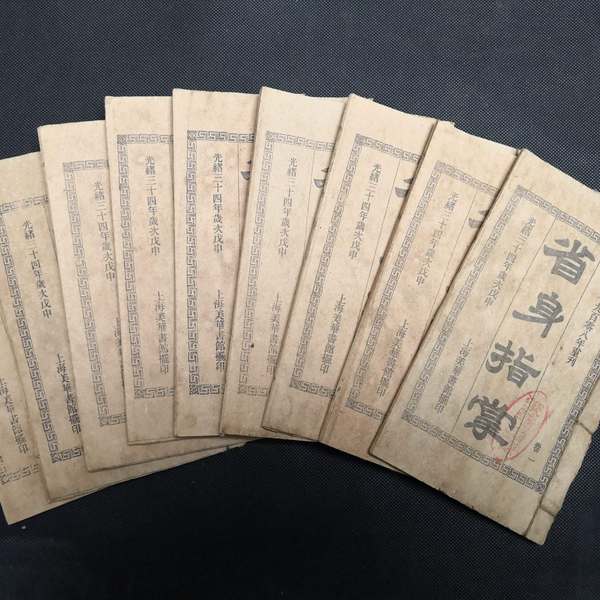 九百零八年重刊
省身指掌
卷一
光緒三十四年歲次戊申
上海美華書館擺印
光緒三十四年歲次戊申
上海美華書館擺印
光緒三十四年歲次戊申
上海美華書館擺印
光緒三十四年歲次戊申
上海美華書館擺印
光緒三十四年歲次戊申
上海美華書館擺印
光緒三十四年歲次戊申
上海美華書館擺印
光緒三十四年歲次戊申
上海美華書館擺印
光緒 十四年歲次戊申
上海美華書館擺印
上海美華書館擺印